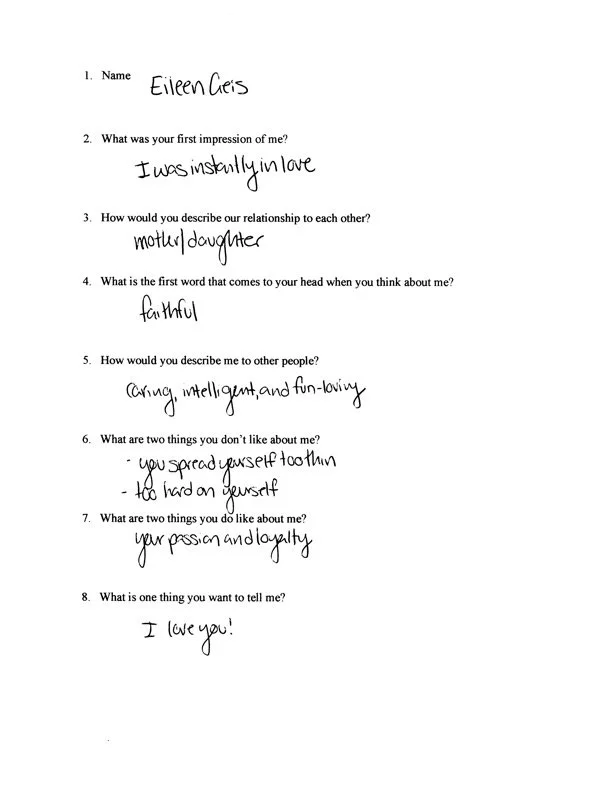 1. Name
Eileen Geis
2. What was your first impression of me?
I was instantly in love
3. How would you describe our relationship to each other?
mother/daughter
4. What is the first word that comes to your head when you think about me?
faithful
5. How would you describe me to other people?
Caring, intelligent, and fun-loving
6. What are two things you don't like about me?
- you spread yourself too thin
- too hard on yourself
7. What are two things you do like about me?
your passion and loyalty
8. What is one thing you want to tell me?
I love you!